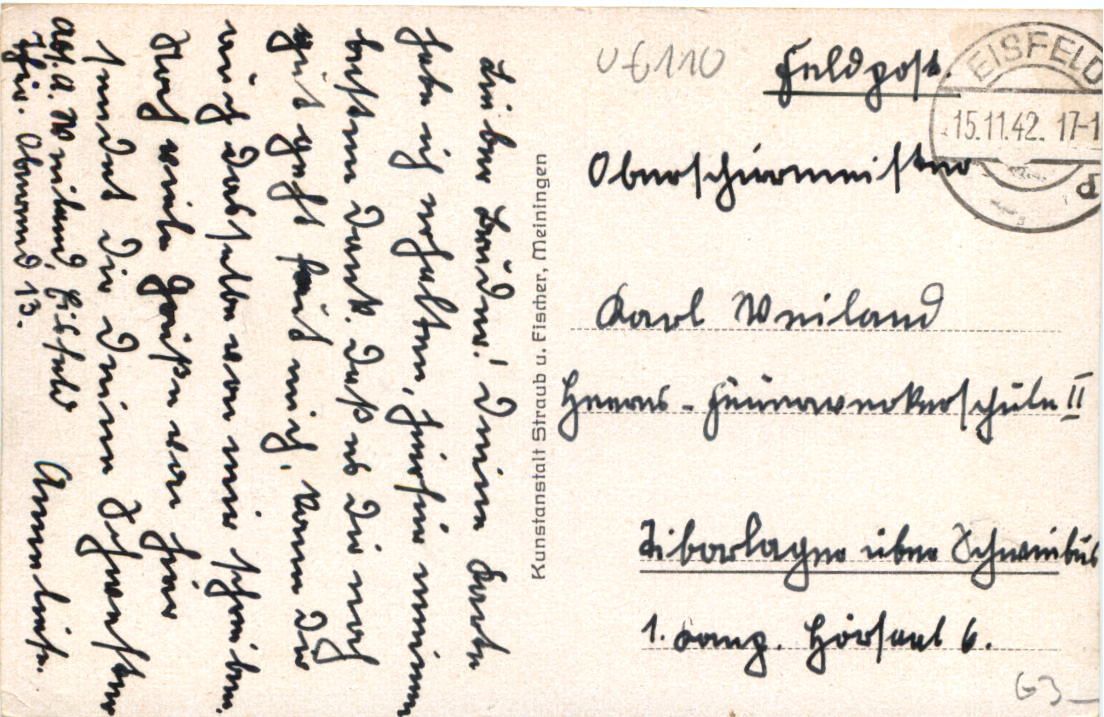 Lieber Bruder! Deine Karte
habe ich erhalten, hierfür meinen
besten Dank. Daß es Dir noch
gut geht freut mich, kann Dir
auch dasselbe von mir schreiben.
Noch viele Grüße von hier
sendet Dir Deine Schwester
Anneliese.
Abs. A. Weiland, Eisfeld
Thür. Oberend 13.
Kunstanstalt Straub u. Fischer, Meiningen
U-6110
Feldpost.
EISFELD
15.11.42. 17-1
Oberschirrmeister
Karl Weiland
Heeres-Feuerwerkerschule II
Tiborlager über Schwiebus
1. Komp. Hörsaal 6.
G3